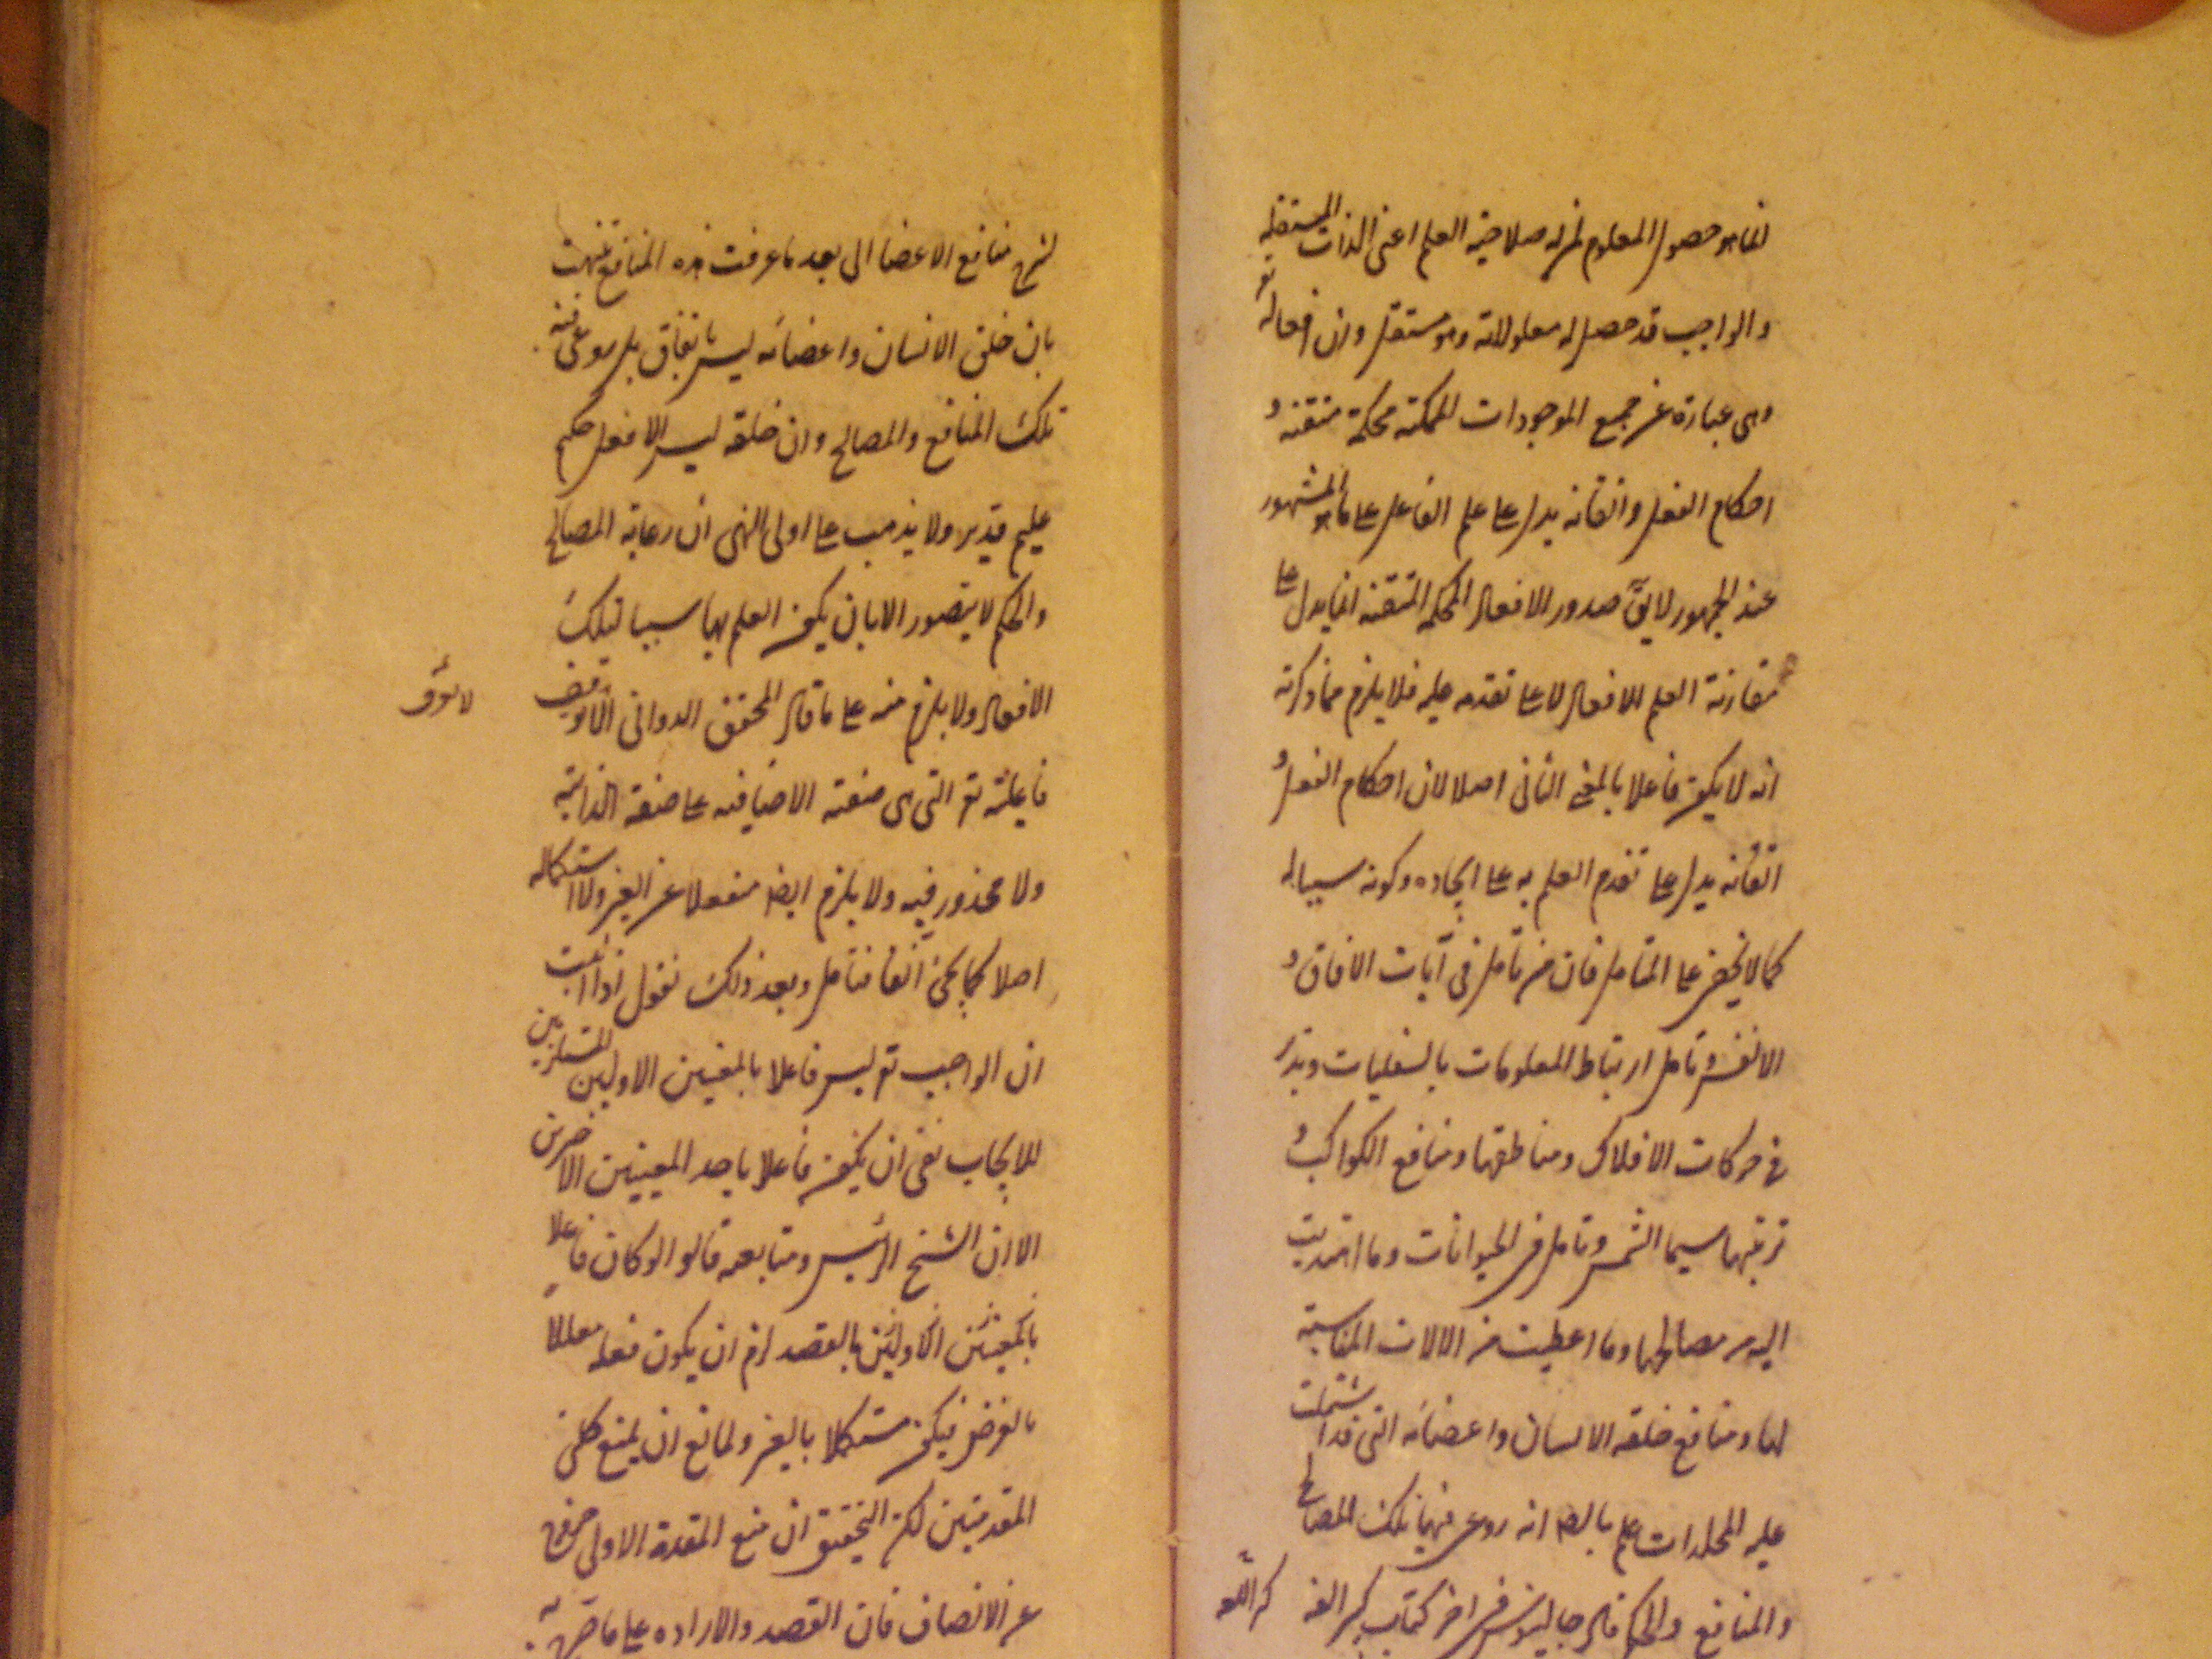 انما هو حصول المعلوم لمن له صلاحية العلم اعنى الذات المستقلة
والواجب قد حصل له معلولاته وهو مستقل وان افعاله تع
وهى عبارة عن جميع الموجودات الممكنة محكمة متقنة و
احكام الفعل واتقانه يدل على علم الفاعل على ما هو المشهور
عند الجمهور لا يق صدور الافعال المحكمة المتقنة انما يدل على
مقارنة العلم الافعال لا على تقدمه عليه فلا يلزم مما ذكرته
انه لا يكون فاعلا بالمعنى الثانى اصلا لان احكام الفعل و
اتقانه يدل على تقدم العلم به على ايجاده وكونه سببا له
كما لا يخفى على المتامل فان من تامل فى آيات الافاق و
الانفس وتامل ارتباط العلويات بالسفليات وتدبر
فى حركات الافلاك ومناطقها ومنافع الكواكب و
ترتيبها سيما الشمس وتامل فى الحيوانات وما اهتديت
اليه من مصالحها وما اعطيت من الالات المناسبة
لها ومنافع خلقه الانسان واعضائه التى قد اشتملت
عليه المجلدات علم بالضر انه روعى فيها تلك المصالح
والمنافع والحكم قال جالينوس فى اخر كتاب
لشرح منافع الاعضا الى بعد ما عرفت هذه المنافع تنبهت
بان خلق الانسان واعضائه ليس باتفاق بل هو
تلك المنافع والمصالح وان خلقه ليس الا فعل حكيم
عليم قدير ولا يذهب على اولى النهى ان رعاية المصالح
والحكم لا يتصور الا بان يكون العلم بها سببا لتلك
الافعال ولا يلزم منه على ما قال المحقق الدوانى الا توقف
لا توقف
فاعليته تع التى هى صفته الاضافيه على صفته الذاتية
ولا محذور فيه ولا يلزم ايضا منفعلا عن الغير ولا استكماله
اصلا كما يجئ آنفا فتامل وبعد ذلك نقول اذا اثبت
ان الواجب تع ليس فاعلا بالمعنيين الاولين المستلزمين
للايجاب بقى ان يكون فاعلا باحد المعنيين الاخرين
الا ان الشيخ الرئيس ومتابعه قالوا لو كان فاعلا
بالمعنيين الاولين بالقصد لزم ان يكون فعله معللا
بالغرض فيكون مستكملا بالغير ولمانع ان يمنع كلتى
المقدمتين لكن التحقيق ان منع المقدمة الاولى خروج
عن الانصاف فان القصد والاراده على ما صرح به